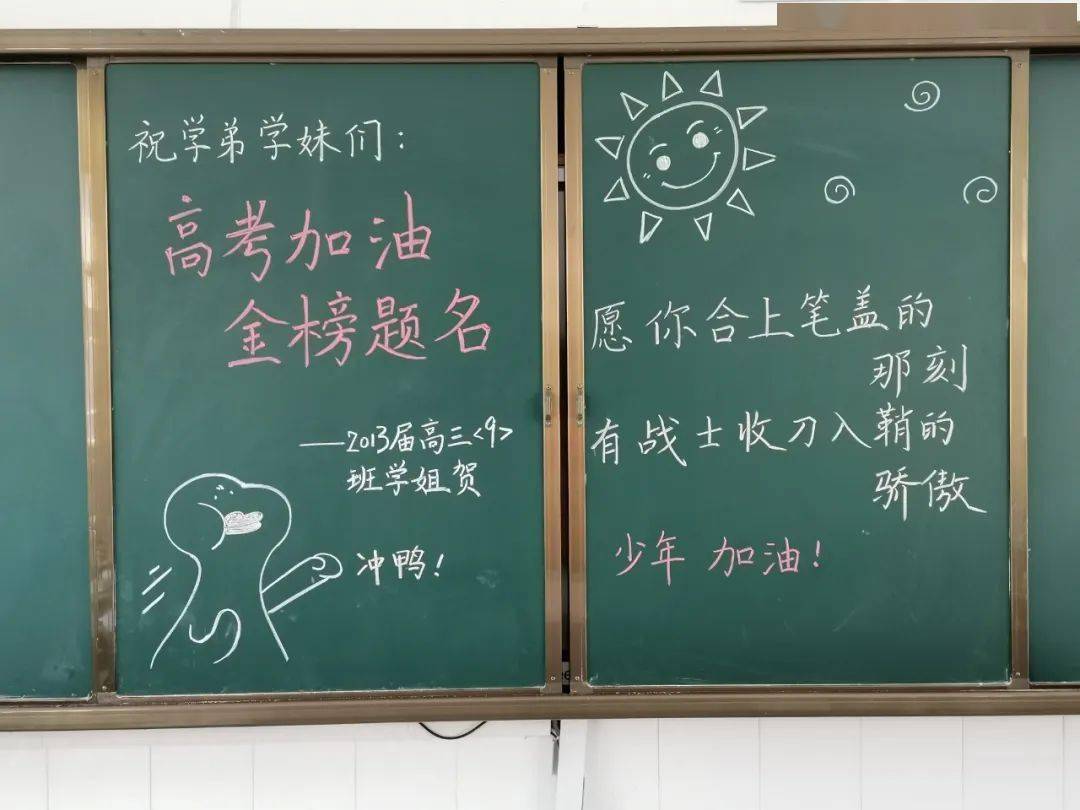 祝学弟学妹们：
高考加油
金榜题名
——2013届高三<9>
班学姐贺
冲鸭！
愿你合上笔盖的
那刻
有战士收刀入鞘的
骄傲
少年 加油！